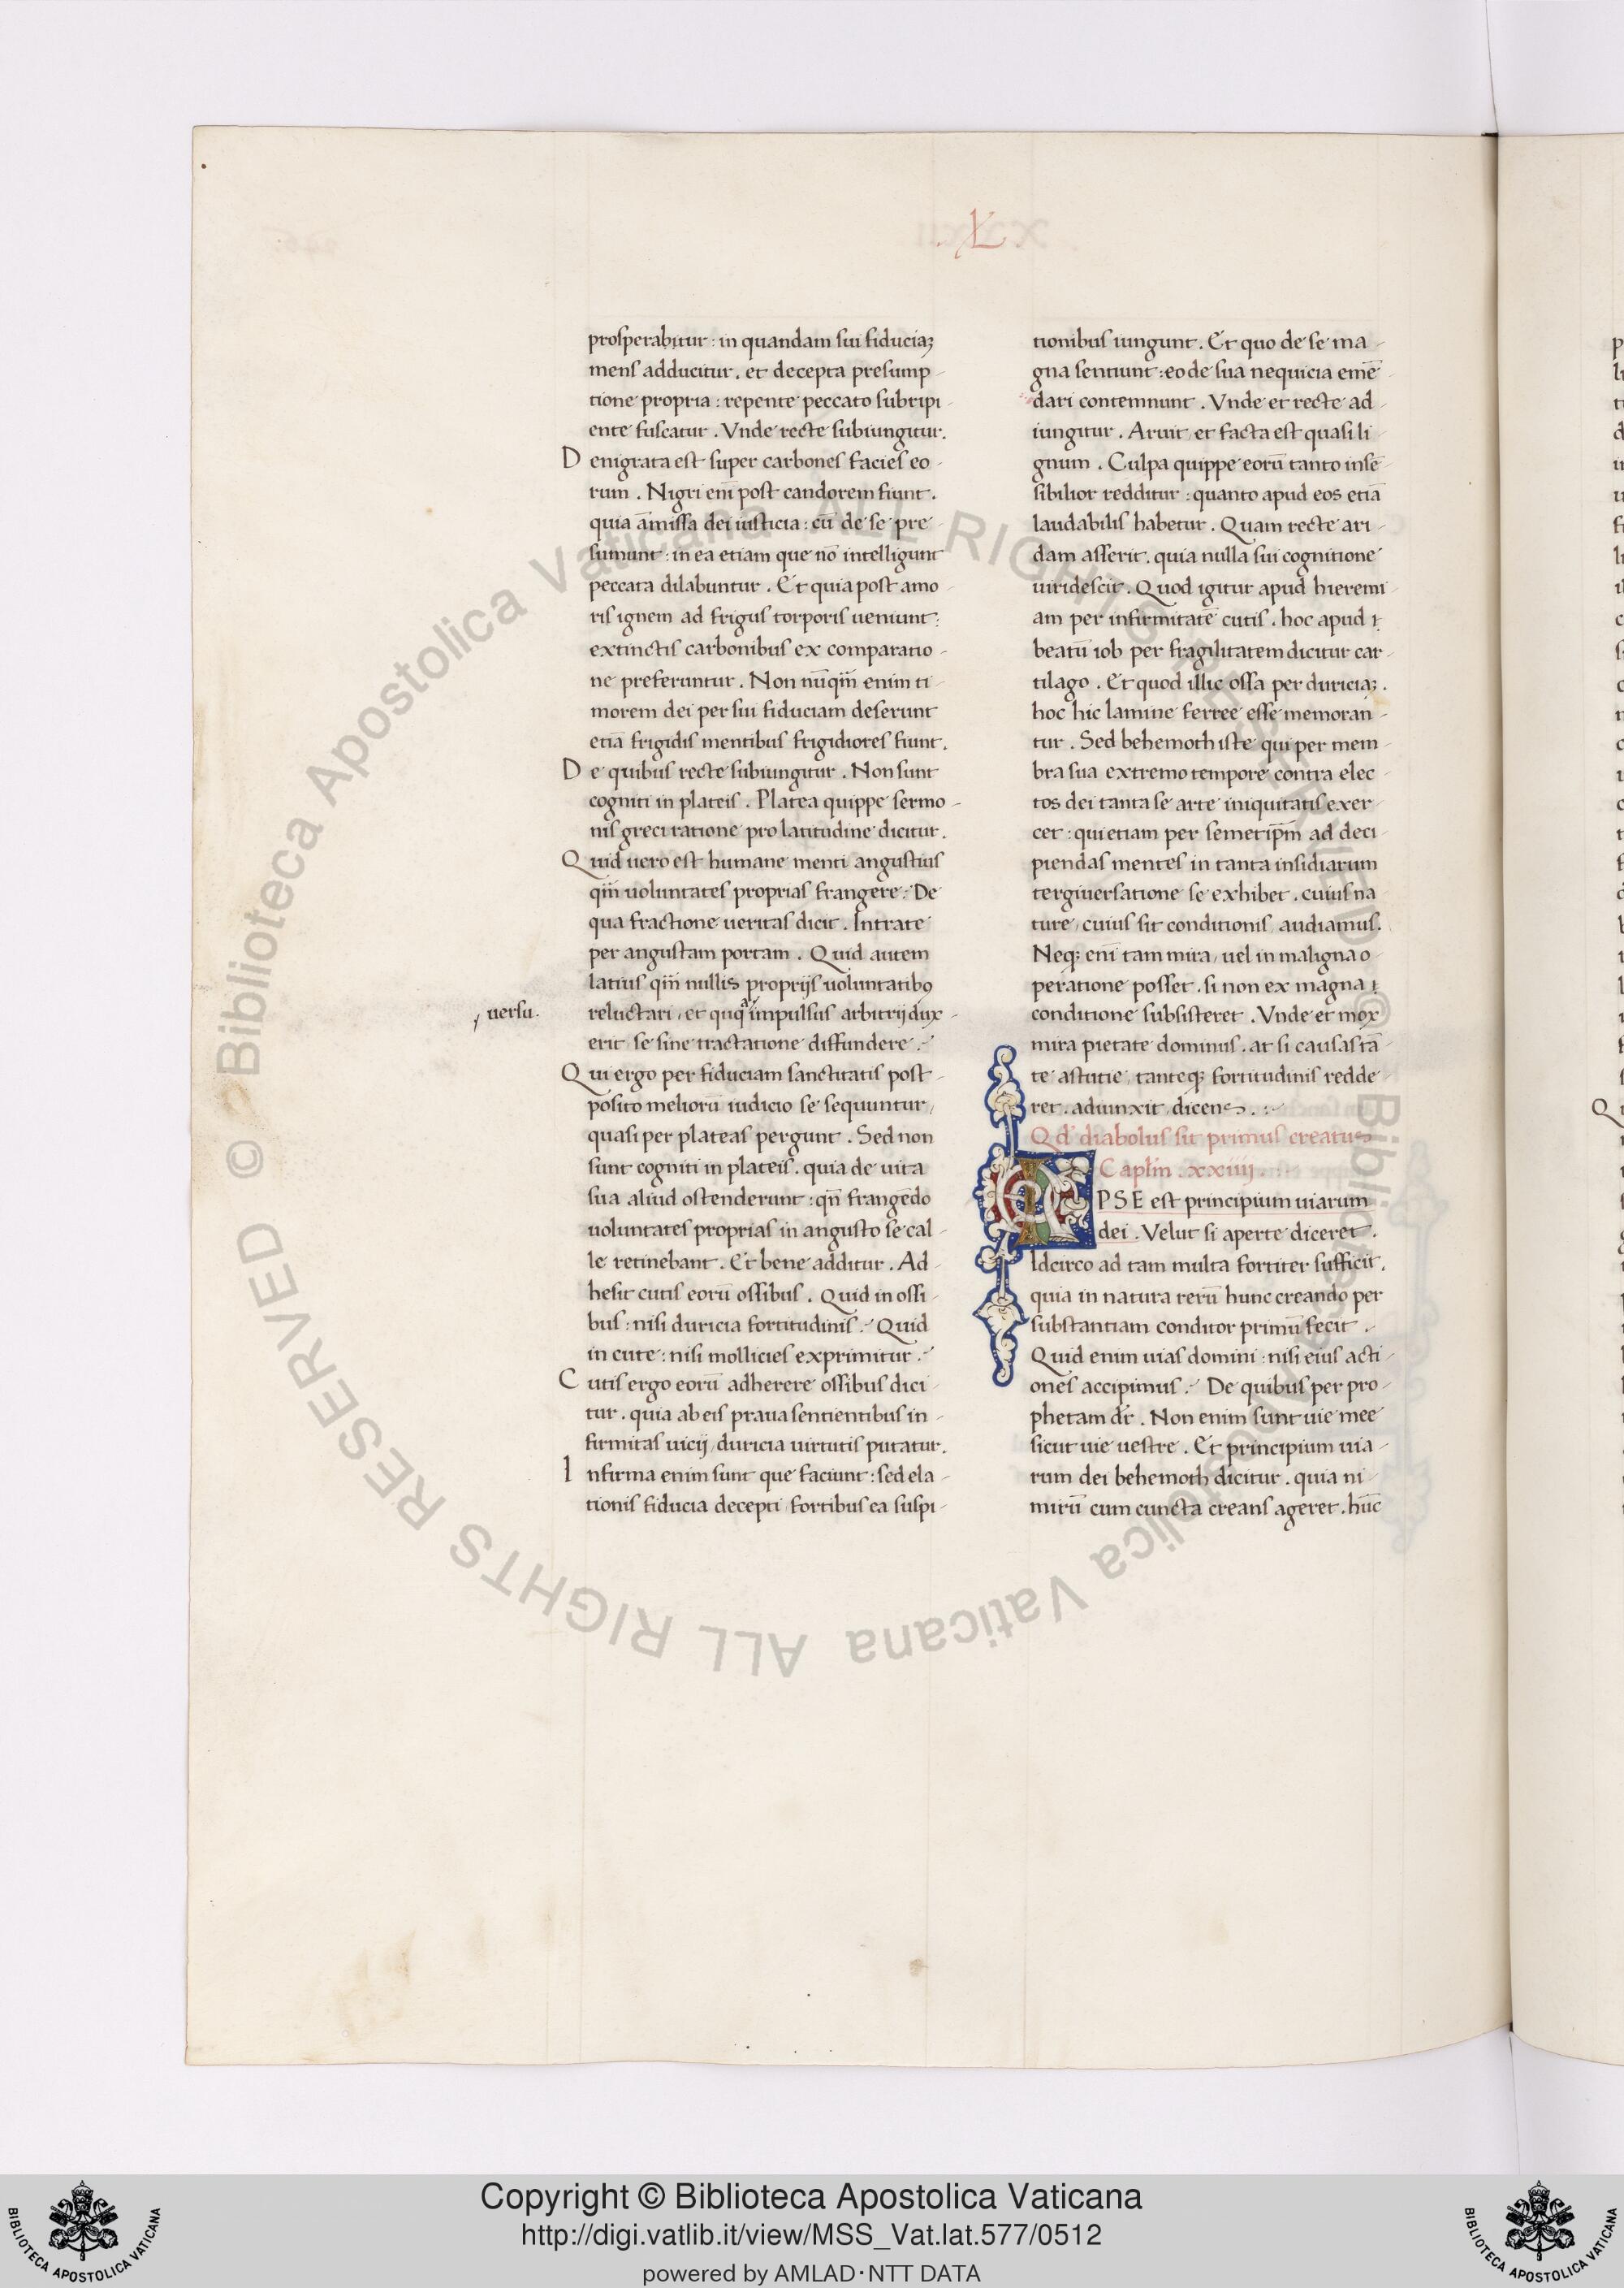 .L.
prosperabitur : in quandam sui fiduciaꝫ
mens adducitur . et decepta presump-
tione propria : repente peccato subripi-
ente fuscatur . Vnde recte subiungitur.
Denigrata est super carbones facies eo-
rum . Nigri eni᷑ post candorem fiunt .
quia am̄issa dei iusticia : cū de se pre-
sumunt : in ea etiam que nō intelligunt
peccata dilabuntur . Et quia post amo-
ris ignem ad frigus torporis ueniunt :
extinctis carbonibus ex comparatio-
ne preferuntur . Non nūqm̄ enim ti-
morem dei per sui fiduciam deserunt
etiā frigidis mentibus frigidiores fiunt .
De quibus recte subiungitur . Non sunt
cogniti in plateis . Platea quippe sermo-
nis greci ratione pro latitudine dicitur .
Quid uero est humane menti angustius
qm̄ uoluntates proprias frangere : De
qua fractione ueritas dicit . Intrate
per angustam portam . Quid autem
latius qm̄ nullis proprijs uoluntatibꝯ
uersu.
reluctari , et quqª impulsus arbitrij dux-
erit se sine tractatione diffundere .
Qui ergo per fiduciam sanctitatis post-
posito meliorū iudicio se sequuntur ,
quasi per plateas pergunt . Sed non
sunt cogniti in plateis . quia de uita
sua aliud ostenderunt : qn̄ frangēdo
uoluntates proprias in angusto se cal-
le retinebant . Et bene additur . Ad-
hesit cutis eorū ossibus . Quid in ossi-
bus : nisi duricia fortitudinis . Quid
in cute : nisi mollicies exprimitur .
Cutis ergo eorū adherere ossibus dici-
tur . quia ab eis praua sentientibus in-
firmitas uicij , duricia uirtutis putatur .
Infirma enim sunt que faciunt : sed ela-
tionis fiducia decepti fortibus ea suspi-
tionibus iungunt . Et quo de se ma-
gna sentiunt : eo de sua nequicia emē-
dari contemnunt . Vnde et recte ad-
iungitur . Aruit et facta est quasi li-
gnum . Culpa quippe eorū tanto insē-
sibilior redditur : quanto apud eos etiā
laudabilis habetur . Quam recte ari-
dam asserit . quia nulla sui cognitione
uiridescit . Quod igitur apud hieremi
am per infirmitatē cutis . hoc apud
beatū iob per fragilitatem dicitur car-
tilago . Et quod illic ossa per duriciaꝫ .
hoc hic lamine ferree esse memoran-
tur . Sed behemoth iste qui per mem-
bra sua extremo tempore contra elec-
tos dei tanta se arte iniquitatis exer-
cet : qui etiam per semetip̄m ad deci-
piendas mentes in tanta insidiarum
tergiuersatione se exhibet . cuius na-
ture , cuius sit conditionis audiamus .
Neqꝫ eni᷑ tam mira , uel in maligna o-
peratione posset . si non ex magna
conditione subsisteret . Vnde et mox
mira pietate dominus . ac si causas tā-
te astutie , tanteqꝫ fortitudinis redde-
ret . adiunxit dicens . :-
Qd' diabolus sit primus creatus
Caplm̄ . xxiiij .
IPSE est principium uiarum
dei . Velut si aperte diceret .
Idcirco ad tam multa fortiter sufficit .
quia in natura rerū hunc creando per
substantiam conditor primū fecit .
Quid enim uias domini : nisi eius acti-
ones accipimus . De quibus per pro-
phetam dr̄ . Non enim sunt uie mee
sicut uie uestre . Et principium uia-
rum dei behemoth dicitur . quia ni-
mirū cum cuncta creans ageret . hūc
© Biblioteca Apostolica Vaticana ALL RIGHTS RESERVED © Biblioteca Apostolica Vaticana ALL RIGHTS RESERVED
Copyright © Biblioteca Apostolica Vaticana
http://digi.vatlib.it/view/MSS_Vat.lat.577/0512
powered by AMLAD·NTT DATA
BIBLIOTECA APOSTOLICA VATICANA
BIBLIOTECA APOSTOLICA VATICANA